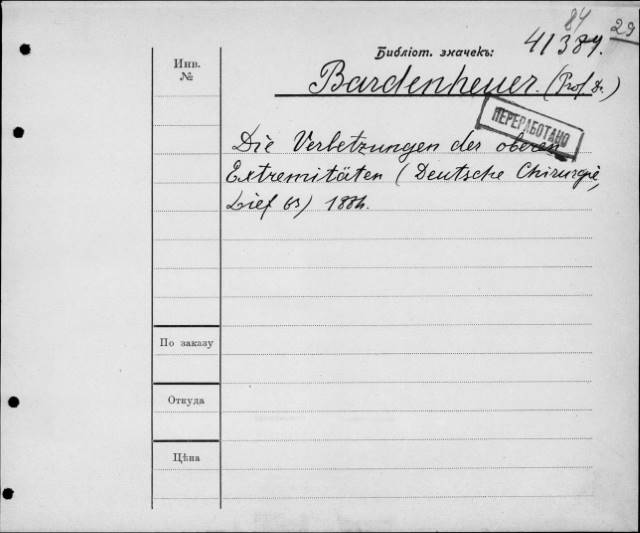 84
29
Библіот. значекъ:
41384.
Инв.
№
Bardenheuer. (Prof Dr.)
ПЕРЕРАБОТАНО
Die Verletzungen der oberen
Extremitäten (Deutsche Chirurgie,
Lief 63) 1884.
По заказу
Откуда
Цѣна